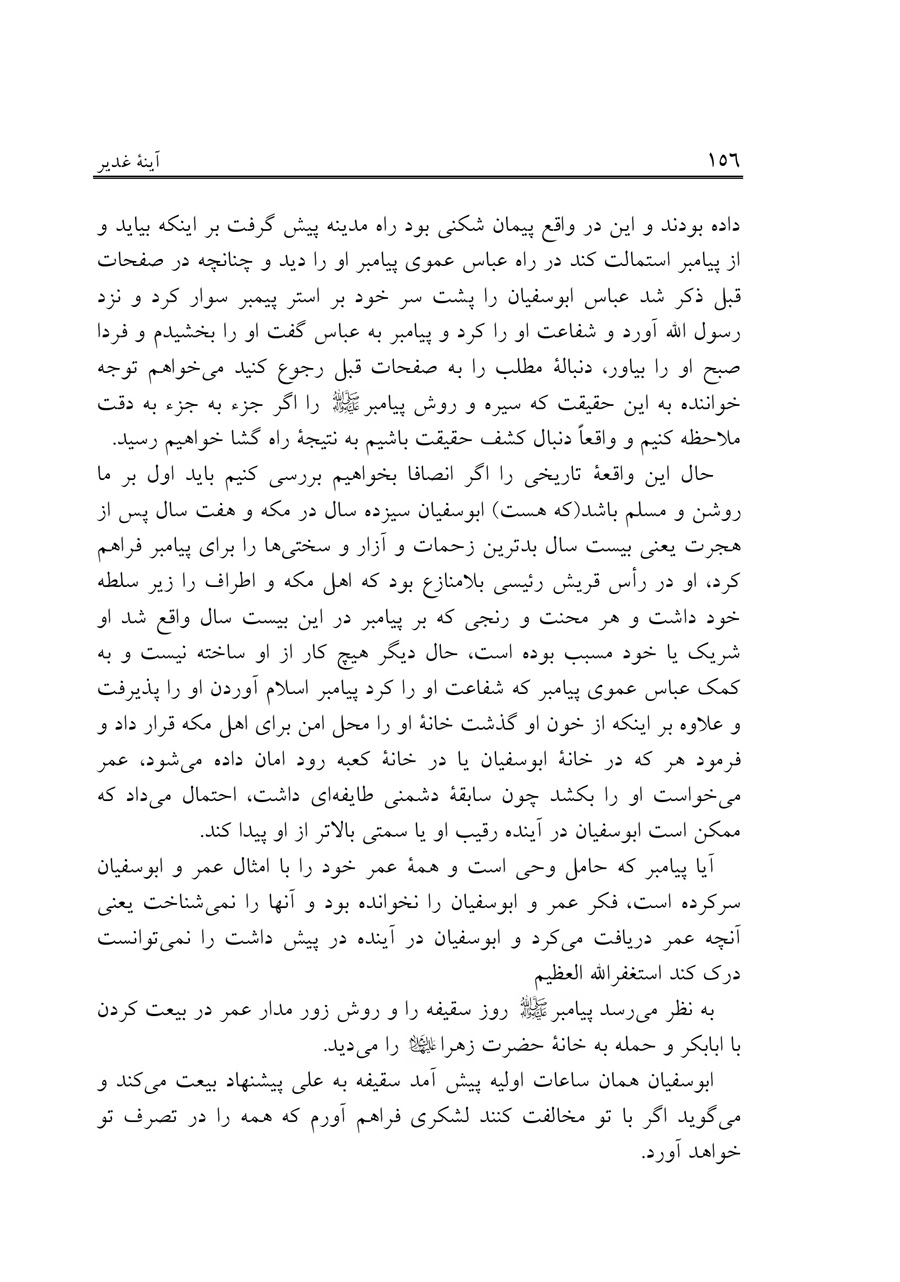 ١٥٦ آینهٔ غدیر
داده بودند و این در واقع پیمان شکنی بود راه مدینه پیش گرفت بر اینکه بیاید و
از پیامبر استمالت کند در راه عباس عموی پیامبر او را دید و چنانچه در صفحات
قبل ذکر شد عباس ابوسفیان را پشت سر خود بر استر پیمبر سوار کرد و نزد
رسول الله آورد و شفاعت او را کرد و پیامبر به عباس گفت او را بخشیدم و فردا
صبح او را بیاور، دنبالهٔ مطلب را به صفحات قبل رجوع کنید می‌خواهم توجه
خواننده به این حقیقت که سیره و روش پیامبرﷺ را اگر جزء به جزء به دقت
ملاحظه کنیم و واقعاً دنبال کشف حقیقت باشیم به نتیجهٔ راه گشا خواهیم رسید.
حال این واقعهٔ تاریخی را اگر انصافا بخواهیم بررسی کنیم باید اول بر ما
روشن و مسلم باشد(که هست) ابوسفیان سیزده سال در مکه و هفت سال پس از
هجرت یعنی بیست سال بدترین زحمات و آزار و سختی‌ها را برای پیامبر فراهم
کرد، او در رأس قریش رئیسی بلامنازع بود که اهل مکه و اطراف را زیر سلطه
خود داشت و هر محنت و رنجی که بر پیامبر در این بیست سال واقع شد او
شریک یا خود مسبب بوده است، حال دیگر هیچ کار از او ساخته نیست و به
کمک عباس عموی پیامبر که شفاعت او را کرد پیامبر اسلام آوردن او را پذیرفت
و علاوه بر اینکه از خون او گذشت خانهٔ او را محل امن برای اهل مکه قرار داد و
فرمود هر که در خانهٔ ابوسفیان یا در خانهٔ کعبه رود امان داده می‌شود، عمر
می‌خواست او را بکشد چون سابقهٔ دشمنی طایفه‌ای داشت، احتمال می‌داد که
ممکن است ابوسفیان در آینده رقیب او یا سمتی بالاتر از او پیدا کند.
آیا پیامبر که حامل وحی است و همهٔ عمر خود را با امثال عمر و ابوسفیان
سرکرده است، فکر عمر و ابوسفیان را نخوانده بود و آنها را نمی‌شناخت یعنی
آنچه عمر دریافت می‌کرد و ابوسفیان در آینده در پیش داشت را نمی‌توانست
درک کند استغفرالله العظیم
به نظر می‌رسد پیامبرﷺ روز سقیفه را و روش زور مدار عمر در بیعت کردن
با ابابکر و حمله به خانهٔ حضرت زهرا علیها السلام را می‌دید.
ابوسفیان همان ساعات اولیه پیش آمد سقیفه به علی پیشنهاد بیعت می‌کند و
می‌گوید اگر با تو مخالفت کنند لشکری فراهم آورم که همه را در تصرف تو
خواهد آورد.